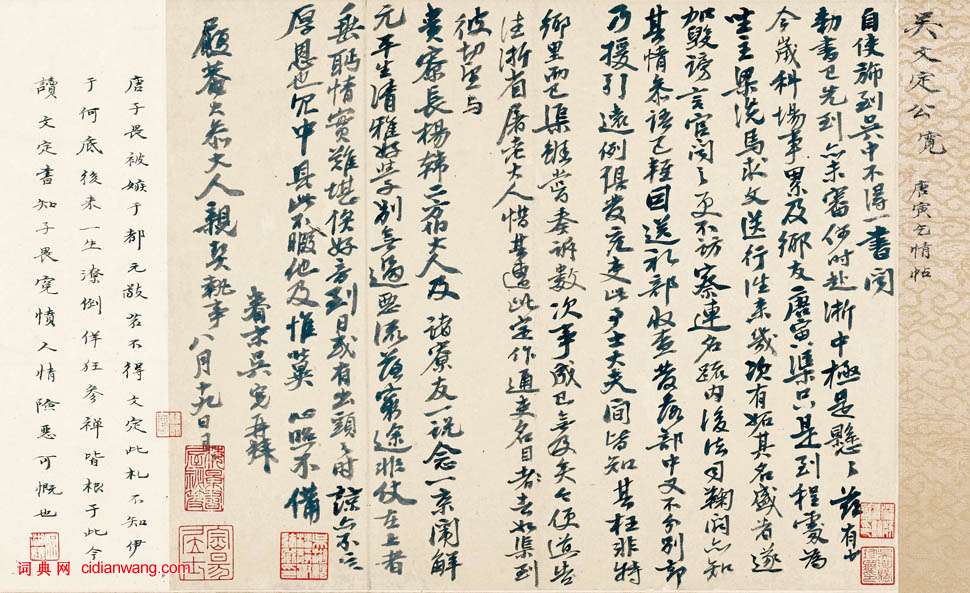 吴文定公寬
唐寅乞情帖
自使斾到吳中不得一書聞
勑書已先到亦未審何時赴浙中極是懸懸茲有
今歲科場事累及鄉友唐寅渠只是到程處為
坐主梁洗馬求文送行往来幾次有妬其名盛者遂
加毀謗言官聞之更不訪察連名疏內後法司鞠問亦知
其情參語已輕因送禮部收查發落部中又不分別卻
乃援引遠例俱發充吏此事士大夫間皆知其枉非特
鄉里而已渠雖嘗奏訴數次事成已無及矣今便道告
往浙省屠老大人惜其遭此定作通吏名目者去如渠到
彼切望與
貴寮長楊韓二方伯大人及諸寮友一說念一京闈解
元平生清雅好學別無過惡流落窮途非仗在上者
垂眄情實難堪俟好音到日或有出頭之時諒亦不忘
厚恩也冗中具此不暇他及惟冀心照不備
眷末吳寬再拜
履菴大參大人親契執事八月十九日
唐子畏被嫉于都元敬若不得文定此札不知伊
于何底後来一生潦倒佯狂參禅皆根于此今
讀文定書知子畏寃憤人情險惡可慨也
词典网 cidianwang.com